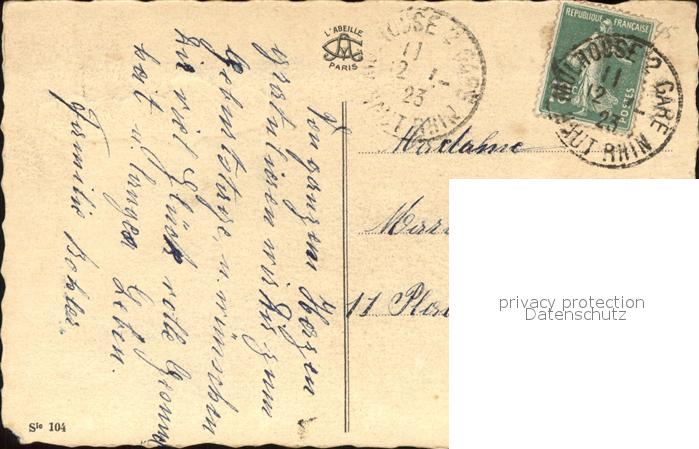 L'ABEILLE
PARIS
MULHOUSE 2 GARE
11
12 -1
23
HAUT RHIN
REPUBLIQUE FRANÇAISE
POSTES
MULHOUSE 2 GARE
11
12 -1
23
HAUT RHIN
Von ganzem Herzen
gratulieren wir Ihr zum
Geburtstage, u. wünschen
Ihr viel Glück
u. langes Leben.
Familie Bohler.
Madame
11
privacy protection
Datenschutz
Sie 104